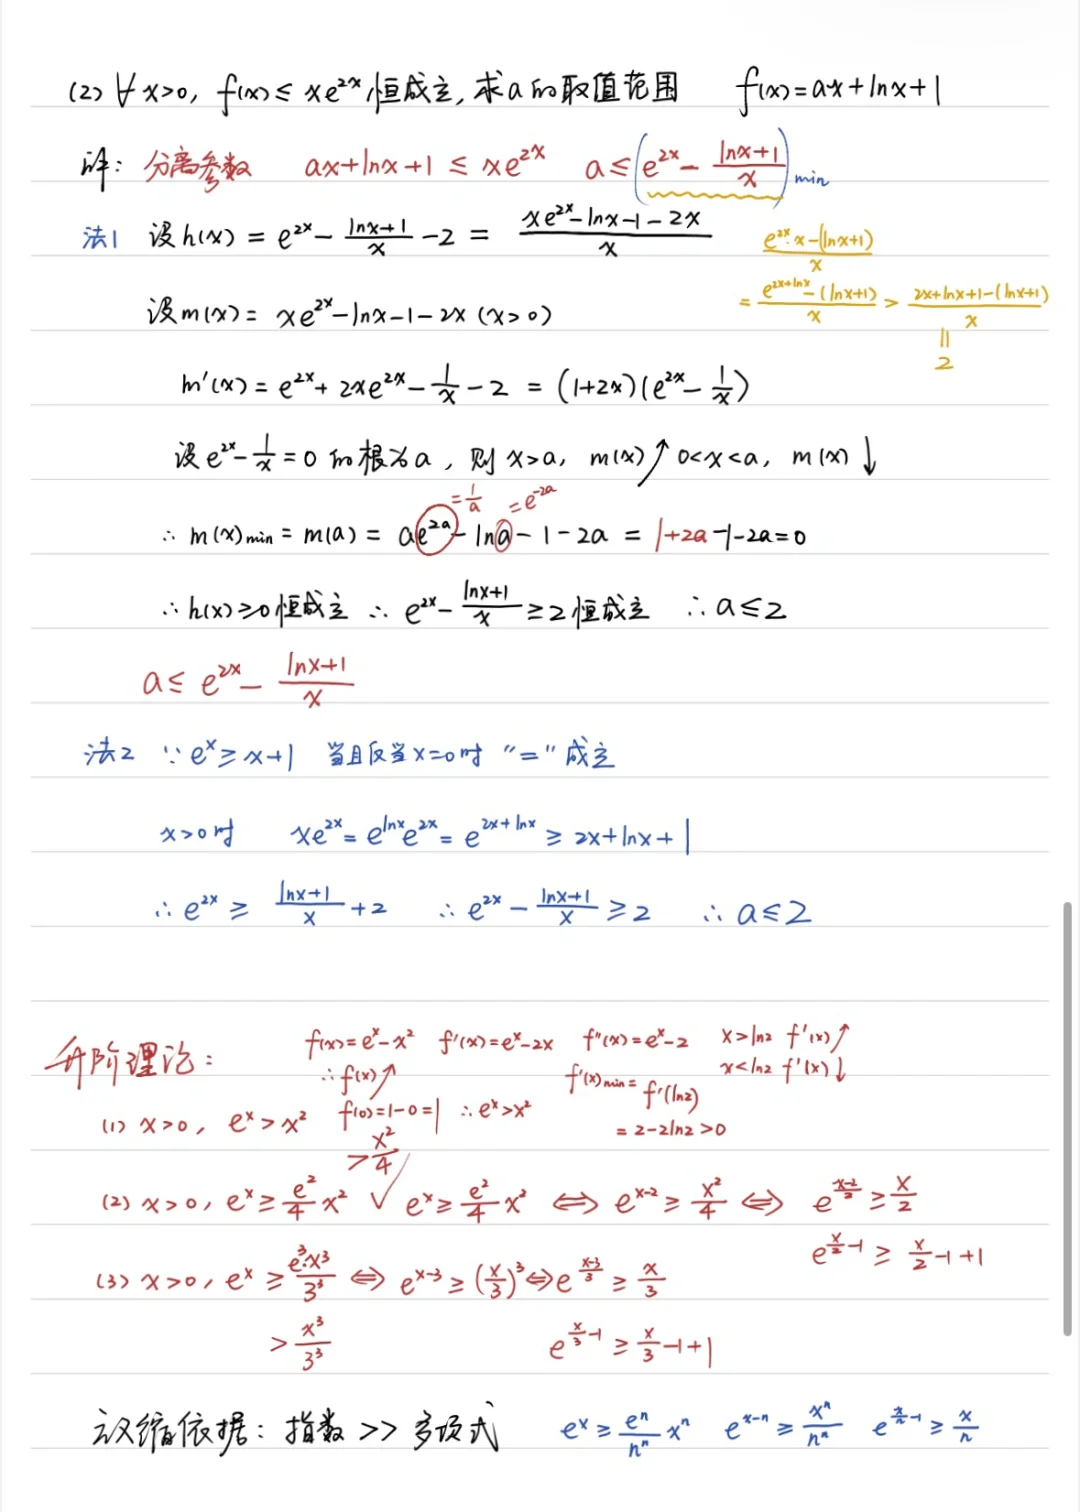 (2) ∀x>0, f(x)≤xe^{2x}恒成立,求a的取值范围 f(x)=ax+lnx+1
解: 分离参数 ax+lnx+1 ≤ xe^{2x} a≤(e^{2x} - \frac{lnx+1}{x})_{min}
法1 设h(x) = e^{2x} - \frac{lnx+1}{x} - 2 = \frac{xe^{2x}-lnx-1-2x}{x}
\frac{e^{2x}·x-(lnx+1)}{x}
= \frac{e^{2x+lnx}-(lnx+1)}{x} > \frac{2x+lnx+1-(lnx+1)}{x}
=
2
设m(x) = xe^{2x}-lnx-1-2x (x>0)
m'(x) = e^{2x}+2xe^{2x}-\frac{1}{x}-2 = (1+2x)(e^{2x}-\frac{1}{x})
设e^{2x}-\frac{1}{x}=0的根为a, 则x>a, m(x)↗ 0<x<a, m(x)↓
=\frac{1}{a} =e^{-2a}
∴ m(x)min = m(a) = ae^{2a}-lna-1-2a = 1+2a-1-2a=0
∴h(x)≥0恒成立 ∴ e^{2x}-\frac{lnx+1}{x}≥2恒成立 ∴a≤2
a≤ e^{2x}-\frac{lnx+1}{x}
法2 ∵e^x≥x+1 当且仅当x=0时 “=”成立
x>0时 xe^{2x}=e^{lnx}e^{2x}=e^{2x+lnx} ≥ 2x+lnx+1
∴e^{2x} ≥ \frac{lnx+1}{x}+2 ∴e^{2x}-\frac{lnx+1}{x}≥2 ∴a≤2
升阶理论: f(x)=e^x-x^2 f'(x)=e^x-2x f''(x)=e^x-2 x>ln2 f'(x)↗
∴f(x)↗ f'(x)min= f'(ln2) x<ln2 f'(x)↓
(1) x>0, e^x>x^2 f(0)=1-0=1 ∴e^x>x^2 =2-2ln2>0
>\frac{x^2}{4}
(2) x>0, e^x≥\frac{e^2}{4}x^2 √ e^x≥\frac{e^2}{4}x^2 ⇔ e^{x-2}≥\frac{x^2}{4} ⇔ e^{\frac{x-2}{2}}≥\frac{x}{2}
e^{\frac{x}{2}-1} ≥ \frac{x}{2}-1+1
(3) x>0, e^x≥\frac{e^3·x^3}{3^3} ⇔ e^{x-3}≥(\frac{x}{3})^3 ⇔ e^{\frac{x-3}{3}} ≥ \frac{x}{3}
>\frac{x^3}{3^3} e^{\frac{x}{3}-1} ≥ \frac{x}{3}-1+1
缩依据: 指数 >> 多项式 e^x≥\frac{e^n}{n^n}x^n e^{x-n}≥\frac{x^n}{n^n} e^{\frac{x}{n}-1}≥\frac{x}{n}